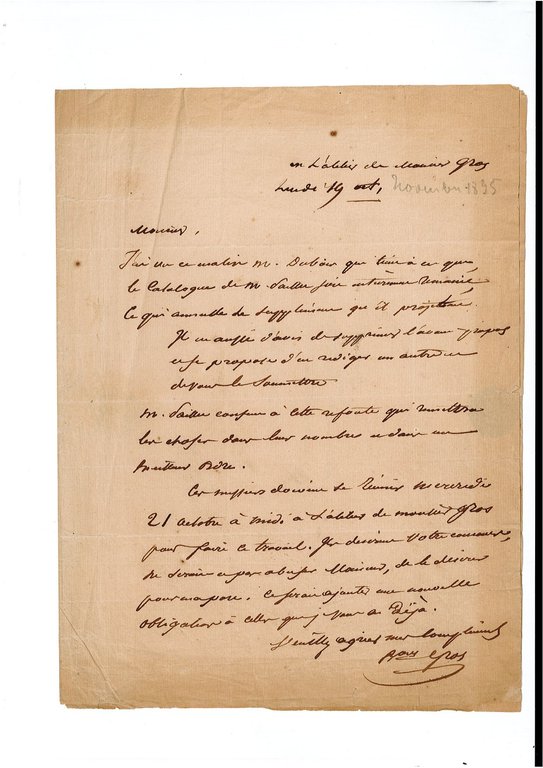 en l'atelier de Monsieur Gros
Lundi 19 oct, Novembre 1835
Monsieur,
J'ai vu ce matin M. Dubois qui tient à ce que
le Catalogue de M. Paillet soit entièrement remanié
ce qui annulle le supplément qu'il projettait.
Il est aussi d'avis de supprimer l'avant propos
et se propose d'en rédiger un autre et
de vous le soumettre
M. Paillet consent à cette refonte qui remettra
les choses dans leur nombre et dans un
meilleur ordre.
Ces messieurs doivent se réunir Mercredi
21 octobre à midi à l'atelier de monsieur Gros
pour faire ce travail. Ils désirent votre concours,
Ne serait ce pas abuser Monsieur, de le désirer
pour ma part. Ce serait ajouter une nouvelle
obligation à celles que je vous ai Déjà.
Veuillez agréer mes Compliments
Gros